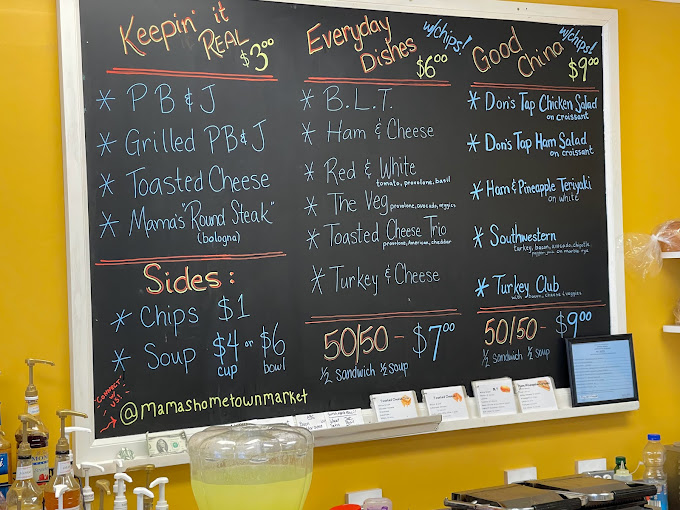 Keepin' it
REAL
$3.00
* PB & J
* Grilled PB & J
* Toasted Cheese
* Mama's "Round Steak"
(bologna)
Sides:
* Chips $1
* Soup $4 or $6
cup bowl
CONNECT
W/ US!
@mamashometownmarket
Everyday
Dishes
w/chips!
$6.00
* B.L.T.
* Ham & Cheese
* Red & White
tomato, provolone, basil
* The Veg provolone, avocado, veggies
* Toasted Cheese Trio
provolone, American, cheddar
* Turkey & Cheese
50/50 - $7.00
1/2 sandwich 1/2 soup
Good
China
w/chips!
$9.00
* Don's Tap Chicken Salad
on croissant
* Don's Tap Ham Salad
on croissant
* Ham & Pineapple Teriyaki
on white
* Southwestern
turkey, bacon, avocado, chipotle,
pepper jack on marble rye
* Turkey Club
with bacon, cheese & veggies
50/50 - $9.00
1/2 sandwich 1/2 soup